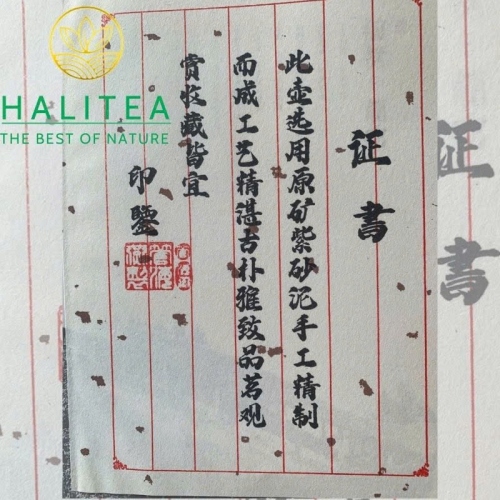 HALITEA
THE BEST OF NATURE
证書
此壶选用原矿紫砂泥手工精制
而成工艺精湛古朴雅致品茗观
赏收藏皆宜
印鑒
证書